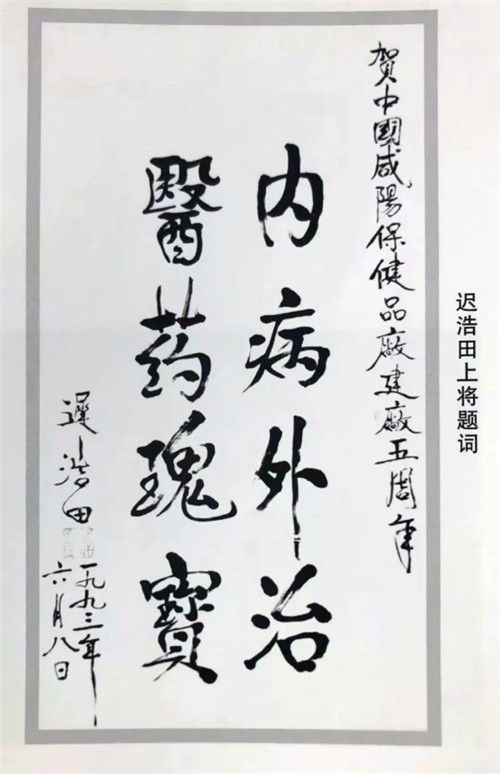 贺中國咸陽保健品廠建廠五周年
内病外治
醫药瑰寶
遲浩田
一九九三年
六月八日
迟浩田上将题词